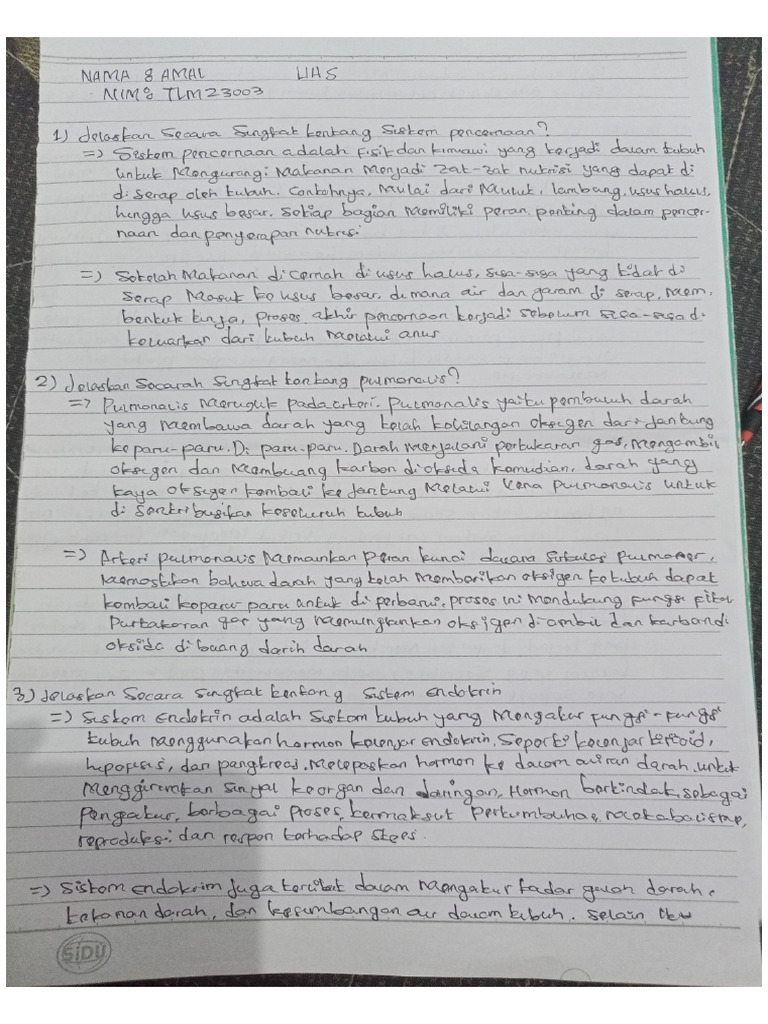 NAMA : AMAL UAS
NIM : TLM23003
1) Jelaskan Secara Singkat tentang Sistem pencernaan?
=> Sistem pencernaan adalah Fisik dan kimiawi yang terjadi dalam tubuh
untuk Mengurangi Makanan Menjadi zat-zat nutrisi yang dapat di
di serap oleh tubuh. Contohnya, Mulai dari Mulut, lambung, usus halus,
hingga usus besar. Setiap bagian Memiliki peran penting dalam pencer-
naan dan penyerapan nutrisi
=> Setelah Makanan di cernah di usus halus, sisa-sisa yang tidak di
Serap Masuk ke usus besar, di mana air dan garam di serap, Mem.
bentuk tinja, Proses akhir pencernaan terjadi sebelum sisa-sisa di
keluarkan dari tubuh Melalui anus
2) Jelaskan Secarah Singkat tentang pulmonalis?
=> Pulmonalis Merujuk pada arteri. Pulmonalis yaitu pembuluh darah
yang Membawa darah yang telah kehilangan oksigen dari Jantung
ke paru-paru. Di paru-paru. Darah Menjalani pertukaran gas, Mengambil
oksigen dan Membuang karbon dioksida kemudian, darah yang
kaya oksigen kembali ke Jantung Melalui Vena pulmonalis untuk
di keseluruh tubuh
=> Arteri pulmonalis Memainkan Peran kunci dalam Sirkulasi Pulmoner,
Memastikan bahwa darah yang telah Memberikan oksigen ke tubuh dapat
kembali keparu paru untuk di perbarui, proses ini Mendukung fungsi
gas yang Memungkinkan oksigen diambil dan karbondi
oksida di buang darih darah
3) Jelaskan Secara Singkat tentang Sistem endokrin
=> Sistem endokrin adalah Sistem tubuh yang Mengatur fungsi-fungsi
tubuh Menggunakan hormon kelenjar endokrin. Seperti kelenjar tiroid,
hipofisis, dan pangkreas, Melepaskan hormon ke dalam aliran darah untuk
Menggirimkan Sinyal keorgan dan Jaringan, Hormon bertindak sebagai
Pengatur, berbagai Proses, termaksut Pertumbuhan,
reproduksi dan respon terhadap stres.
=> Sistem endokrim juga terlibat dalam Mengatur kadar gulah darah,
tekanan darah, dan air dalam tubuh. Selain
SIDU